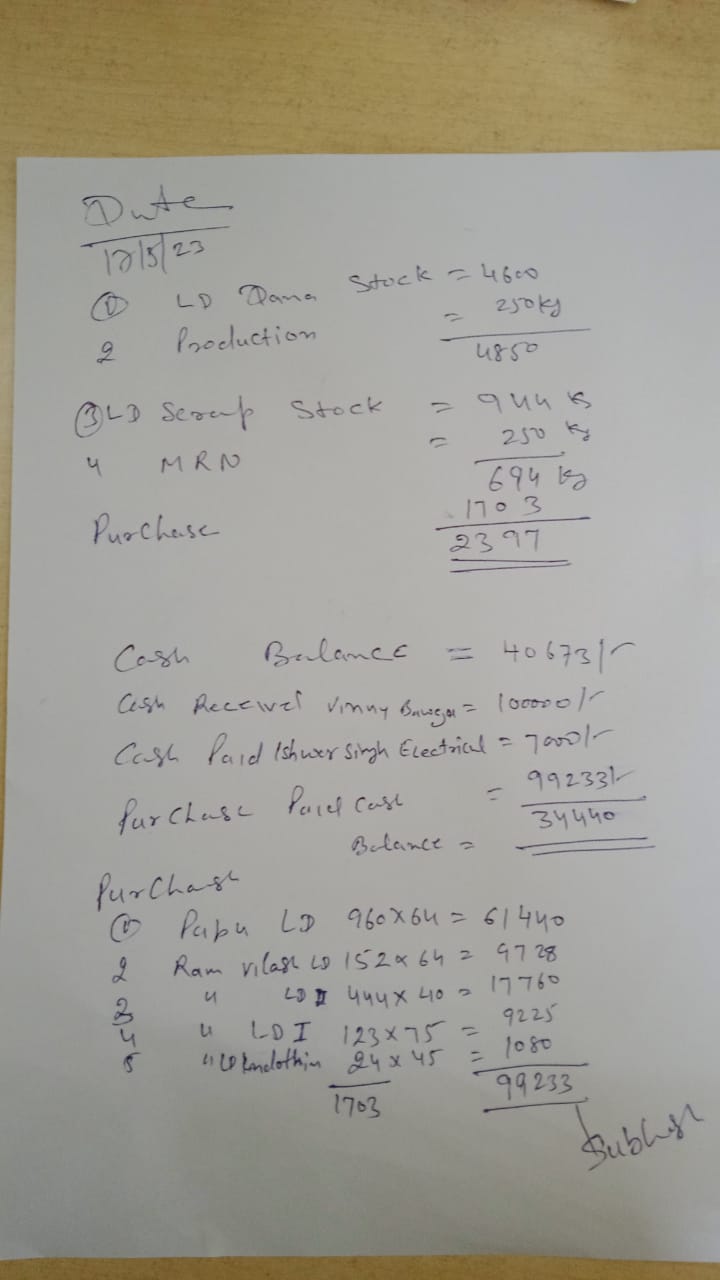 Date
12/5/23
① LD Dana Stock = 4600
2 Production = 250kg
4850
③ LD Scrap Stock = 944 kg
4 MRN = 250 kg
694 kg
Purchase 1703
2397
Cash Balance = 40673/-
Cash Received Vinny = 100000/-
Cash Paid Ishwer Singh Electrical = 7000/-
Purchase Paid Cash = 99233/-
Balance = 34440
Purchash
① Papu LD 960x64 = 61440
2 Ram vilash LD 152x64 = 9728
3 " LD II 444x40 = 17760
4 " LD I 123x75 = 9225
5 " LD 24x45 = 1080
1703 99233
Subhash